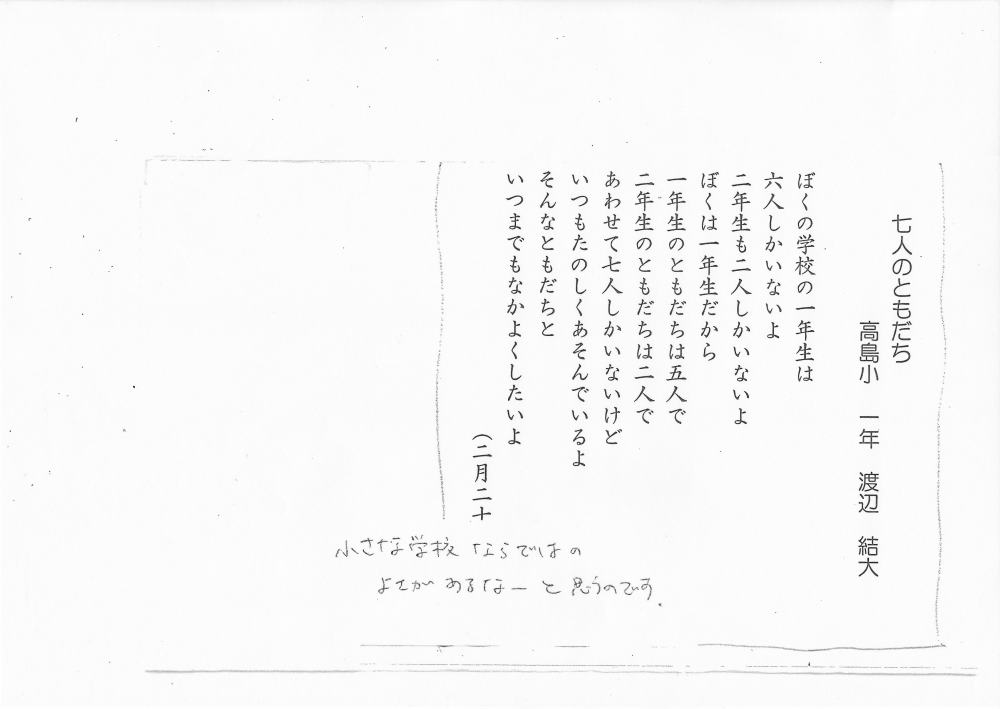 七人のともだち
高島小　一年　渡辺　結大
ぼくの学校の一年生は
六人しかいないよ
二年生も二人しかいないよ
ぼくは一年生だから
一年生のともだちは五人で
二年生のともだちは二人で
あわせて七人しかいないけど
いつもたのしくあそんでいるよ
そんなともだちと
いつまでもなかよくしたいよ
（二月二十
小さな学校ならではの
よさがあるなーと思うのです.